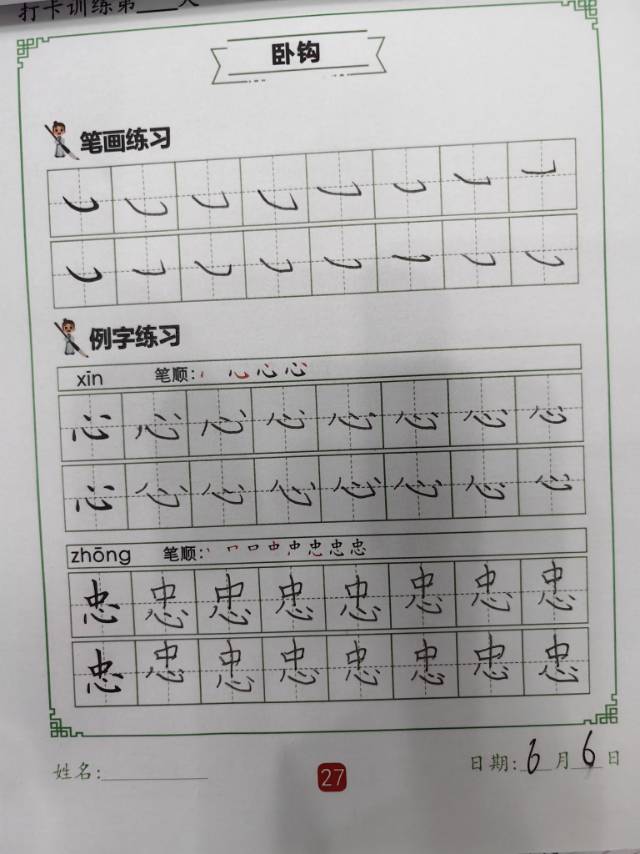 打卡训练第___天
卧钩
笔画练习
例字练习
xīn 笔顺: 丶 心 心 心
心 心 心 心 心 心 心 心
心 心 心 心 心 心 心 心
zhōng 笔顺: 丨 口 口 中 忠 忠 忠 忠
忠 忠 忠 忠 忠 忠 忠 忠
忠 忠 忠 忠 忠 忠 忠 忠
姓名:
27
日期: 6 月 6 日